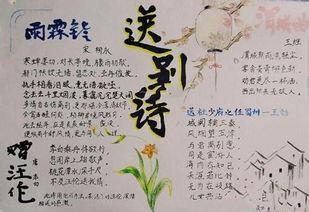 雨霖铃
宋 柳永
寒蝉凄切,对长亭晚,骤雨初歇。
都门帐饮无绪,留恋处,兰舟催发。
执手相看泪眼,竟无语凝噎。
念去去千里烟波,暮霭沉沉楚天阔。
多情自古伤离别,
赠汪伦
唐 李白
李白乘舟将欲行,
忽闻岸上踏歌声。
桃花潭水深千尺,
不及汪伦送我情。
送别诗
王维
渭城朝雨浥轻尘,
客舍青青柳色新。
劝君更尽一杯酒,
西出阳关无故人。
送杜少府之任蜀州 王勃
城阙辅三秦,
风烟望五津。
与君离别意,
同是宦游人。
海内存知己,
天涯若比邻。
无为在歧路,
儿女共沾巾。